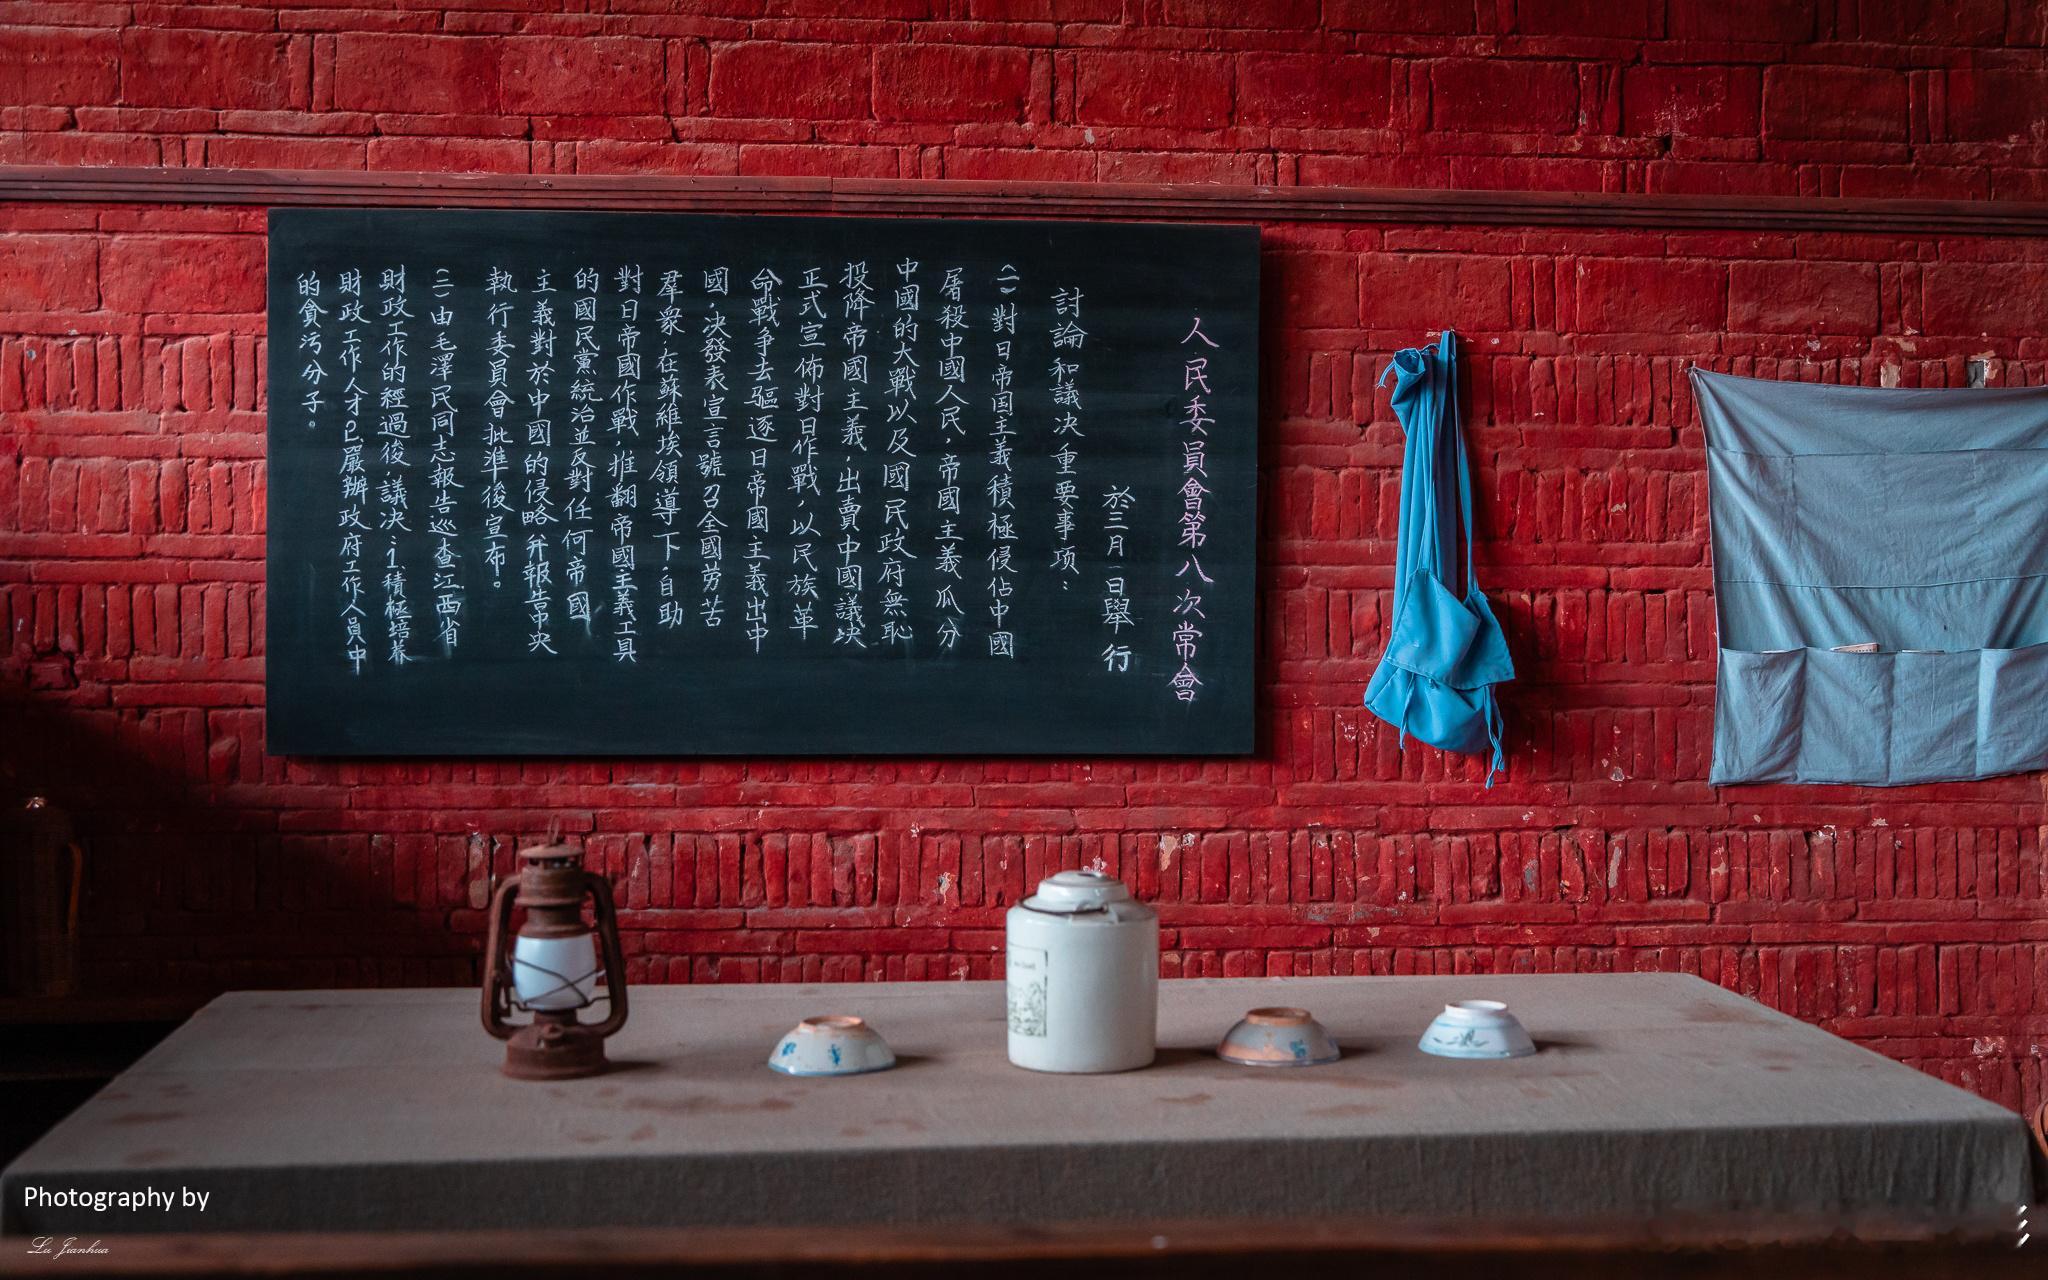 人民委員會第八次常會
於三月一日舉行
討論和議决重要事项：
(一)對日帝国主義積極侵佔中國
屠殺中國人民，帝國主義瓜分
中國的大戰以及國民政府無恥
投降帝國主義，出賣中國議决
正式宣佈對日作戰，以民族革
命戰爭去驅逐日帝國主義出中
國，决發表宣言號召全國劳苦
羣衆，在蘇維埃領導下，自助
對日帝國作戰，推翻帝國主義工具
的國民黨統治並反對任何帝國
主義對於中國的侵略并報告中央
執行委員會批準後宣布。
(二)由毛澤民同志報告巡查江西省
財政工作的經過後，議决：1.積極培养
財政工作人才2.嚴辦政府工作人員中
的貪污分子。
Photography by
Lu Jianhua